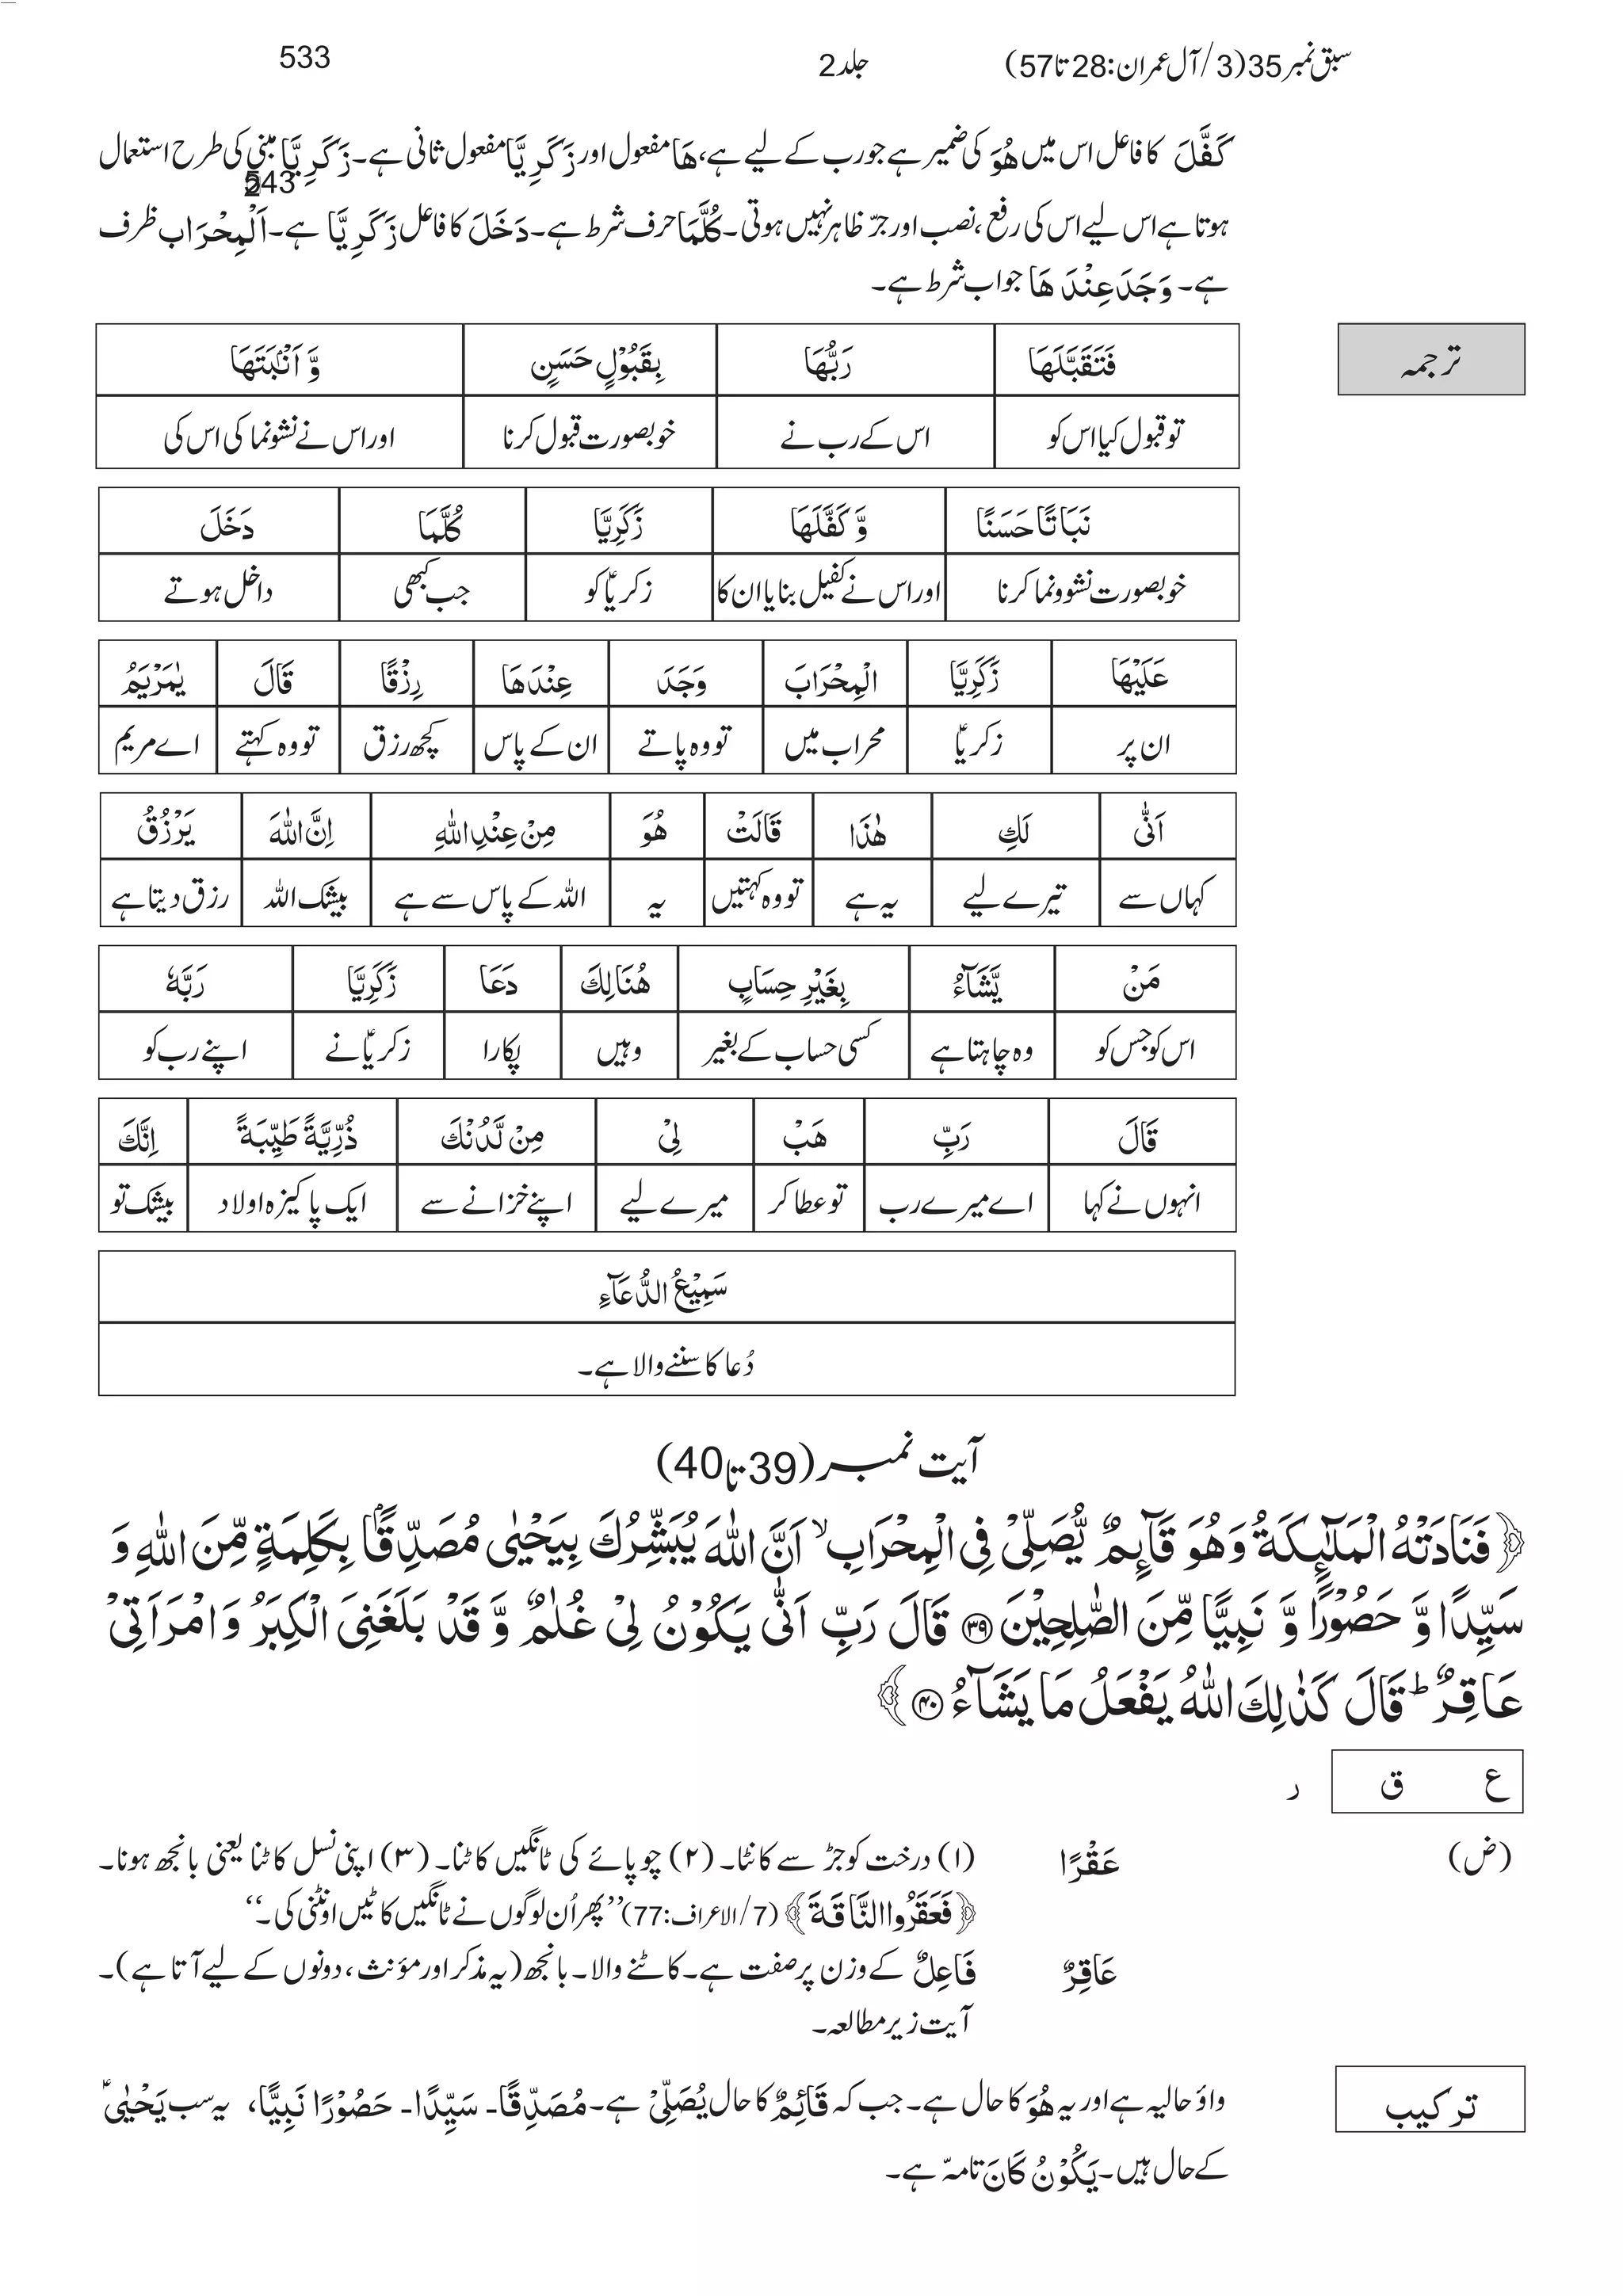 سبق نمبر 35 (3/آل عمران: 28 تا 57) جلد 2 533
كَفَّلَ کا فاعل اس میں هُوَ کی ضمیر ہے جو رب کے لیے ہے، هَا مفعول اور زَكَرِيَّا مفعول ثانی ہے۔ زَكَرِيَّا مبنی کی طرح استعمال
ہوتا ہے اس لیے اس کی رفع، نصب اور جرّ ظاہر نہیں ہوتی۔ كُلَّمَا حرف شرط ہے۔ دَخَلَ کا فاعل زَكَرِيَّا ہے۔ اَلْمِحْرَاب ظرف
ہے۔ وَجَدَ عِنْدَ هَا جواب شرط ہے۔
ترجمہ
فَتَقَبَّلَهَا رَبُّهَا بِقَبُوْلٍ حَسَنٍ وَّ اَنْۢبَتَهَا
تو قبول کیا اس کو اس کے رب نے خوبصورت قبول کرنا اور اس نے نشوونما کی اس کی
نَبَاتًا حَسَنًا وَّ كَفَّلَهَا زَكَرِيَّا كُلَّمَا دَخَلَ
خوبصورت نشوونما کرنا اور اس نے کفیل بنایا ان کا زکریاؑ کو جب کبھی داخل ہوتے
عَلَيْهَا زَكَرِيَّا الْمِحْرَابَ وَجَدَ عِنْدَهَا رِزْقًا قَالَ يٰمَرْيَمُ
ان پر زکریاؑ محراب میں تو وہ پاتے ان کے پاس کچھ رزق تو وہ کہتے اے مریم
اَنّٰى لَكِ هٰذَا قَالَتْ هُوَ مِنْ عِنْدِ اللّٰهِ اِنَّ اللّٰهَ يَرْزُقُ
کہاں سے تیرے لیے یہ ہے تو وہ کہتیں یہ اللہ کے پاس سے ہے بیشک اللہ رزق دیتا ہے
مَنْ يَّشَآءُ بِغَيْرِ حِسَابٍ هُنَالِكَ دَعَا زَكَرِيَّا رَبَّهٗ
اس کو جس کو وہ چاہتا ہے کسی حساب کے بغیر وہیں پکارا زکریاؑ نے اپنے رب کو
قَالَ رَبِّ هَبْ لِيْ مِنْ لَّدُنْكَ ذُرِّيَّةً طَيِّبَةً اِنَّكَ
انہوں نے کہا اے میرے رب تو عطا کر میرے لیے اپنے خزانے سے ایک پاکیزہ اولاد بیشک تو
سَمِيْعُ الدُّعَآءِ
دُعا کا سننے والا ہے۔
آیت نمبر (39 تا 40)
﴿فَنَادَتْهُ الْمَلٰٓئِكَةُ وَهُوَ قَآئِمٌ يُّصَلِّيْ فِى الْمِحْرَابِ ۙ اَنَّ اللّٰهَ يُبَشِّرُكَ بِيَحْيٰى مُصَدِّقًۢا بِكَلِمَةٍ مِّنَ اللّٰهِ وَ
سَيِّدًا وَّ حَصُوْرًا وَّ نَبِيًّا مِّنَ الصّٰلِحِيْنَ ۝۳۹ قَالَ رَبِّ اَنّٰى يَكُوْنُ لِيْ غُلٰمٌ وَّ قَدْ بَلَغَنِيَ الْكِبَرُ وَ امْرَاَتِيْ
عَاقِرٌ ؕ قَالَ كَذٰلِكَ اللّٰهُ يَفْعَلُ مَا يَشَآءُ ۝۴۰﴾
ع ق ر
(ض) عَقْرًا (۱) درخت کو جڑ سے کاٹنا۔ (۲) چوپائے کی ٹانگیں کاٹنا۔ (۳) اپنی نسل کاٹنا یعنی بانجھ ہونا۔
﴿فَعَقَرُوا النَّاقَةَ﴾ (7/الاعراف: 77) ’’پھر اُن لوگوں نے ٹانگیں کاٹیں اونٹنی کی۔‘‘
عَاقِرٌ فَاعِلٌ کے وزن پر صفت ہے۔ کاٹنے والا۔ بانجھ (یہ مذکر اور مؤنث، دونوں کے لیے آتا ہے)۔
آیت زیر مطالعہ۔
ترکیب
واؤ حالیہ ہے اور یہ هُوَ کا حال ہے۔ جب کہ قَائِمٌ کا حال يُصَلِّيْ ہے۔ مُصَدِّقًا۔ سَيِّدًا۔ حَصُوْرًا نَبِيًّا، یہ سب يَحْيٰى ؑ
کے حال ہیں۔ يَكُوْنُ كَانَ تامہّ ہے۔